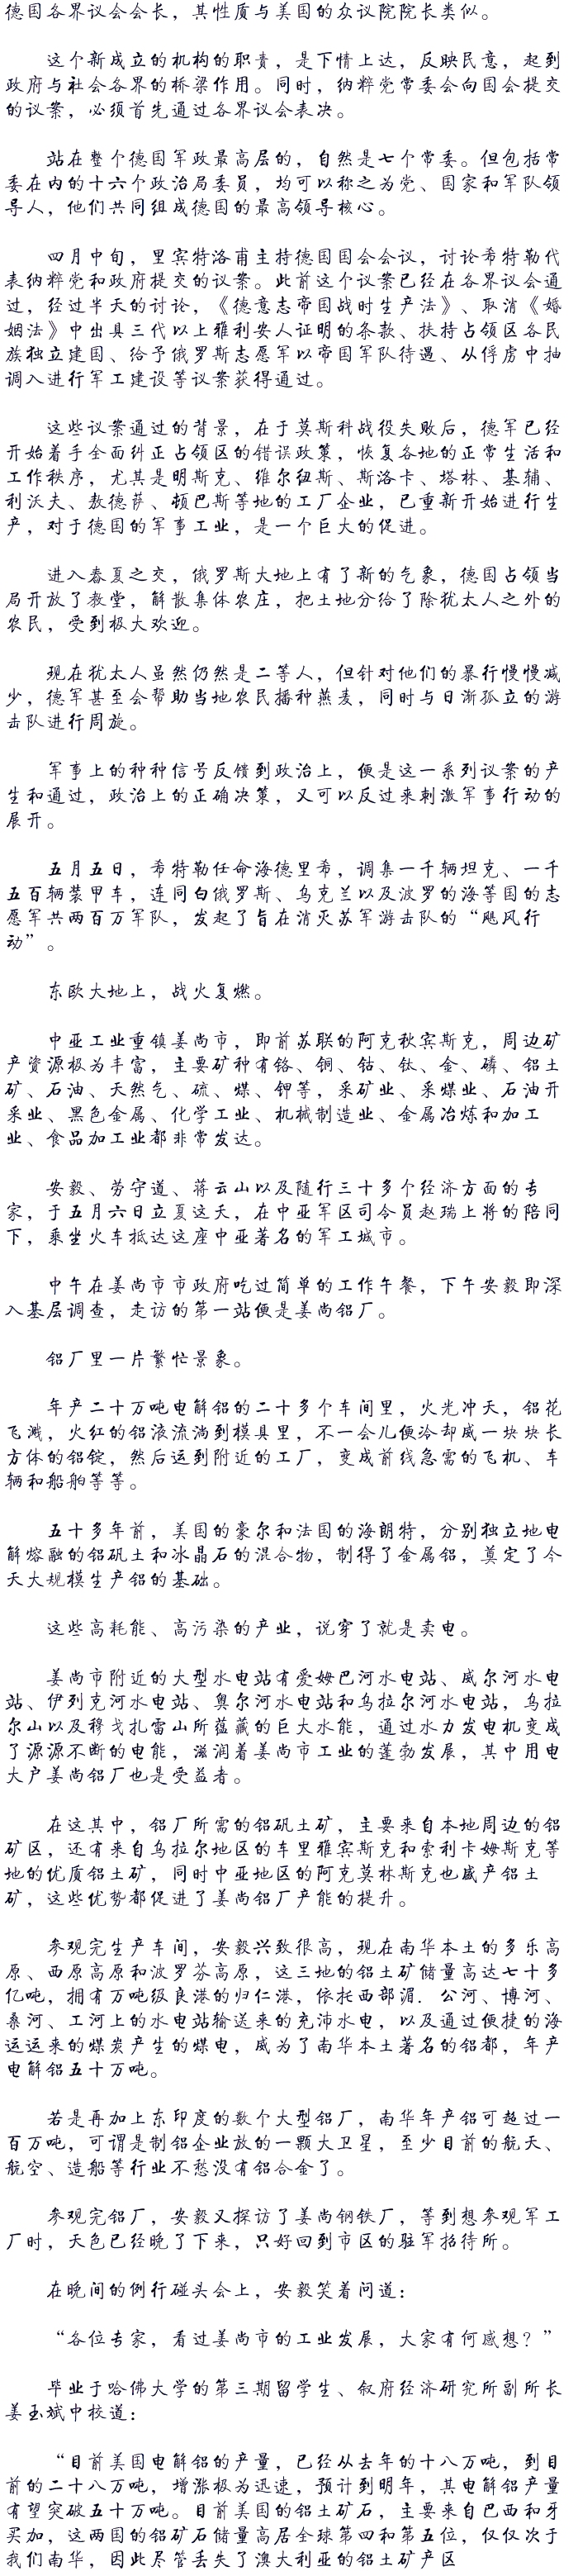 德国各界议会会长，其性质与美国的众议院院长类似。
这个新成立的机构的职责，是下情上达，反映民意，起到
政府与社会各界的桥梁作用。同时，纳粹党常委会向国会提交
的议案，必须首先通过各界议会表决。
站在整个德国军政最高层的，自然是七个常委。但包括常
委在内的十六个政治局委员，均可以称之为党、国家和军队领
导人，他们共同组成德国的最高领导核心。
四月中旬，里宾特洛甫主持德国国会会议，讨论希特勒代
表纳粹党和政府提交的议案。此前这个议案已经在各界议会通
过，经过半天的讨论，《德意志帝国战时生产法》、取消《婚
姻法》中出具三代以上雅利安人证明的条款、扶持占领区各民
族独立建国、给予俄罗斯志愿军以帝国军队待遇、从俘虏中抽
调入进行军工建设等议案获得通过。
这些议案通过的背景，在于莫斯科战役失败后，德军已经
开始着手全面纠正占领区的错误政策，恢复各地的正常生活和
工作秩序，尤其是明斯克、维尔纽斯、斯洛卡、塔林、基辅、
利沃夫、敖德萨、顿巴斯等地的工厂企业，已重新开始进行生
产，对于德国的军事工业，是一个巨大的促进。
进入春夏之交，俄罗斯大地上有了新的气象，德国占领当
局开放了教堂，解散集体农庄，把土地分给了除犹太人之外的
农民，受到极大欢迎。
现在犹太人虽然仍然是二等人，但针对他们的暴行慢慢减
少，德军甚至会帮助当地农民播种燕麦，同时与日渐孤立的游
击队进行周旋。
军事上的种种信号反馈到政治上，便是这一系列议案的产
生和通过，政治上的正确决策，又可以反过来刺激军事行动的
展开。
五月五日，希特勒任命海德里希，调集一千辆坦克、一千
五百辆装甲车，连同白俄罗斯、乌克兰以及波罗的海等国的志
愿军共两百万军队，发起了旨在消灭苏军游击队的“飓风行
动”。
东欧大地上，战火复燃。
中亚工业重镇姜尚市，即前苏联的阿克秋宾斯克，周边矿
产资源极为丰富，主要矿种有铬、铜、钴、钛、金、磷、铝土
矿、石油、天然气、硫、煤、钾等，采矿业、采煤业、石油开
采业、黑色金属、化学工业、机械制造业、金属冶炼和加工
业、食品加工业都非常发达。
安毅、劳守道、蒋云山以及随行三十多个经济方面的专
家，于五月六日立夏这天，在中亚军区司令员赵瑞上将的陪同
下，乘坐火车抵达这座中亚著名的军工城市。
中午在姜尚市市政府吃过简单的工作午餐，下午安毅即深
入基层调查，走访的第一站便是姜尚铝厂。
铝厂里一片繁忙景象。
年产二十万吨电解铝的二十多个车间里，火光冲天，铝花
飞溅，火红的铝液流淌到模具里，不一会儿便冷却成一块块长
方体的铝锭，然后运到附近的工厂，变成前线急需的飞机、车
辆和船舶等等。
五十多年前，美国的豪尔和法国的海朗特，分别独立地电
解熔融的铝矾土和冰晶石的混合物，制得了金属铝，奠定了今
天大规模生产铝的基础。
这些高耗能、高污染的产业，说穿了就是卖电。
姜尚市附近的大型水电站有爱姆巴河水电站、威尔河水电
站、伊列克河水电站、奥尔河水电站和乌拉尔河水电站，乌拉
尔山以及穆戈扎雷山所蕴藏的巨大水能，通过水力发电机变成
了源源不断的电能，滋润着姜尚市工业的蓬勃发展，其中用电
大户姜尚铝厂也是受益者。
在这其中，铝厂所需的铝矾土矿，主要来自本地周边的铝
矿区，还有来自乌拉尔地区的车里雅宾斯克和索利卡姆斯克等
地的优质铝土矿，同时中亚地区的阿克莫林斯克也盛产铝土
矿，这些优势都促进了姜尚铝厂产能的提升。
参观完生产车间，安毅兴致很高，现在南华本土的多乐高
原、西原高原和波罗芬高原，这三地的铝土矿储量高达七十多
亿吨，拥有万吨级良港的归仁港，依托西部湄．公河、博河、
桑河、工河上的水电站输送来的充沛水电，以及通过便捷的海
运运来的煤炭产生的煤电，成为了南华本土著名的铝都，年产
电解铝五十万吨。
若是再加上东印度的数个大型铝厂，南华年产铝可超过一
百万吨，可谓是制铝企业放的一颗大卫星，至少目前的航天、
航空、造船等行业不愁没有铝合金了。
参观完铝厂，安毅又探访了姜尚钢铁厂，等到想参观军工
厂时，天色已经晚了下来，只好回到市区的驻军招待所。
在晚间的例行碰头会上，安毅笑着问道：
“各位专家，看过姜尚市的工业发展，大家有何感想？”
毕业于哈佛大学的第三期留学生、叙府经济研究所副所长
姜玉斌中校道：
“目前美国电解铝的产量，已经从去年的十八万吨，到目
前的二十八万吨，增涨极为迅速，预计到明年，其电解铝产量
有望突破五十万吨。目前美国的铝土矿石，主要来自巴西和牙
买加，这两国的铝矿石储量高居全球第四和第五位，仅仅次于
我们南华，因此尽管丢失了澳大利亚的铝土矿产区